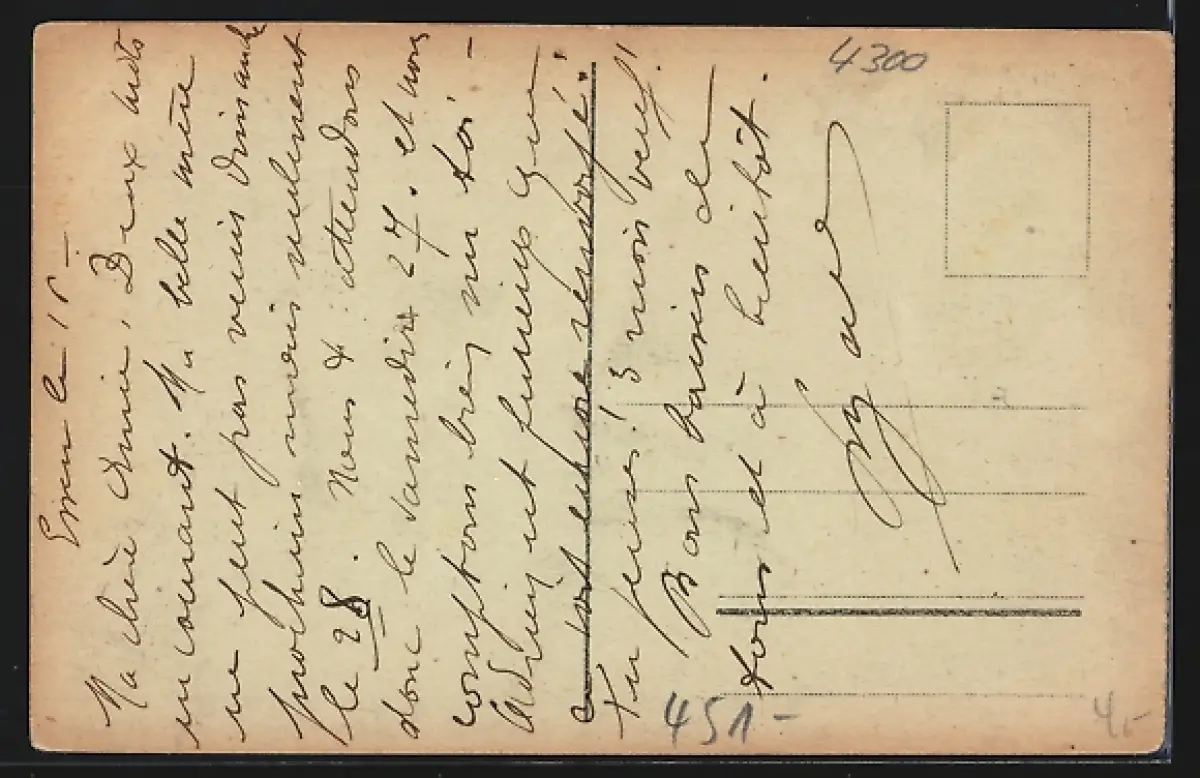 le 15 –
Ma chère Annie, Deux mots
en courant. Ma belle mère
ne peut pas venir dimanche
prochain mais seulement
le 28. Nous t'attendons
donc le samedi 27. et nous
comptons bien sur toi –
est furieux que
tu penses! 3 mois veuf!
Bons baisers de
tous et à bientôt.
4300
451-
4.-